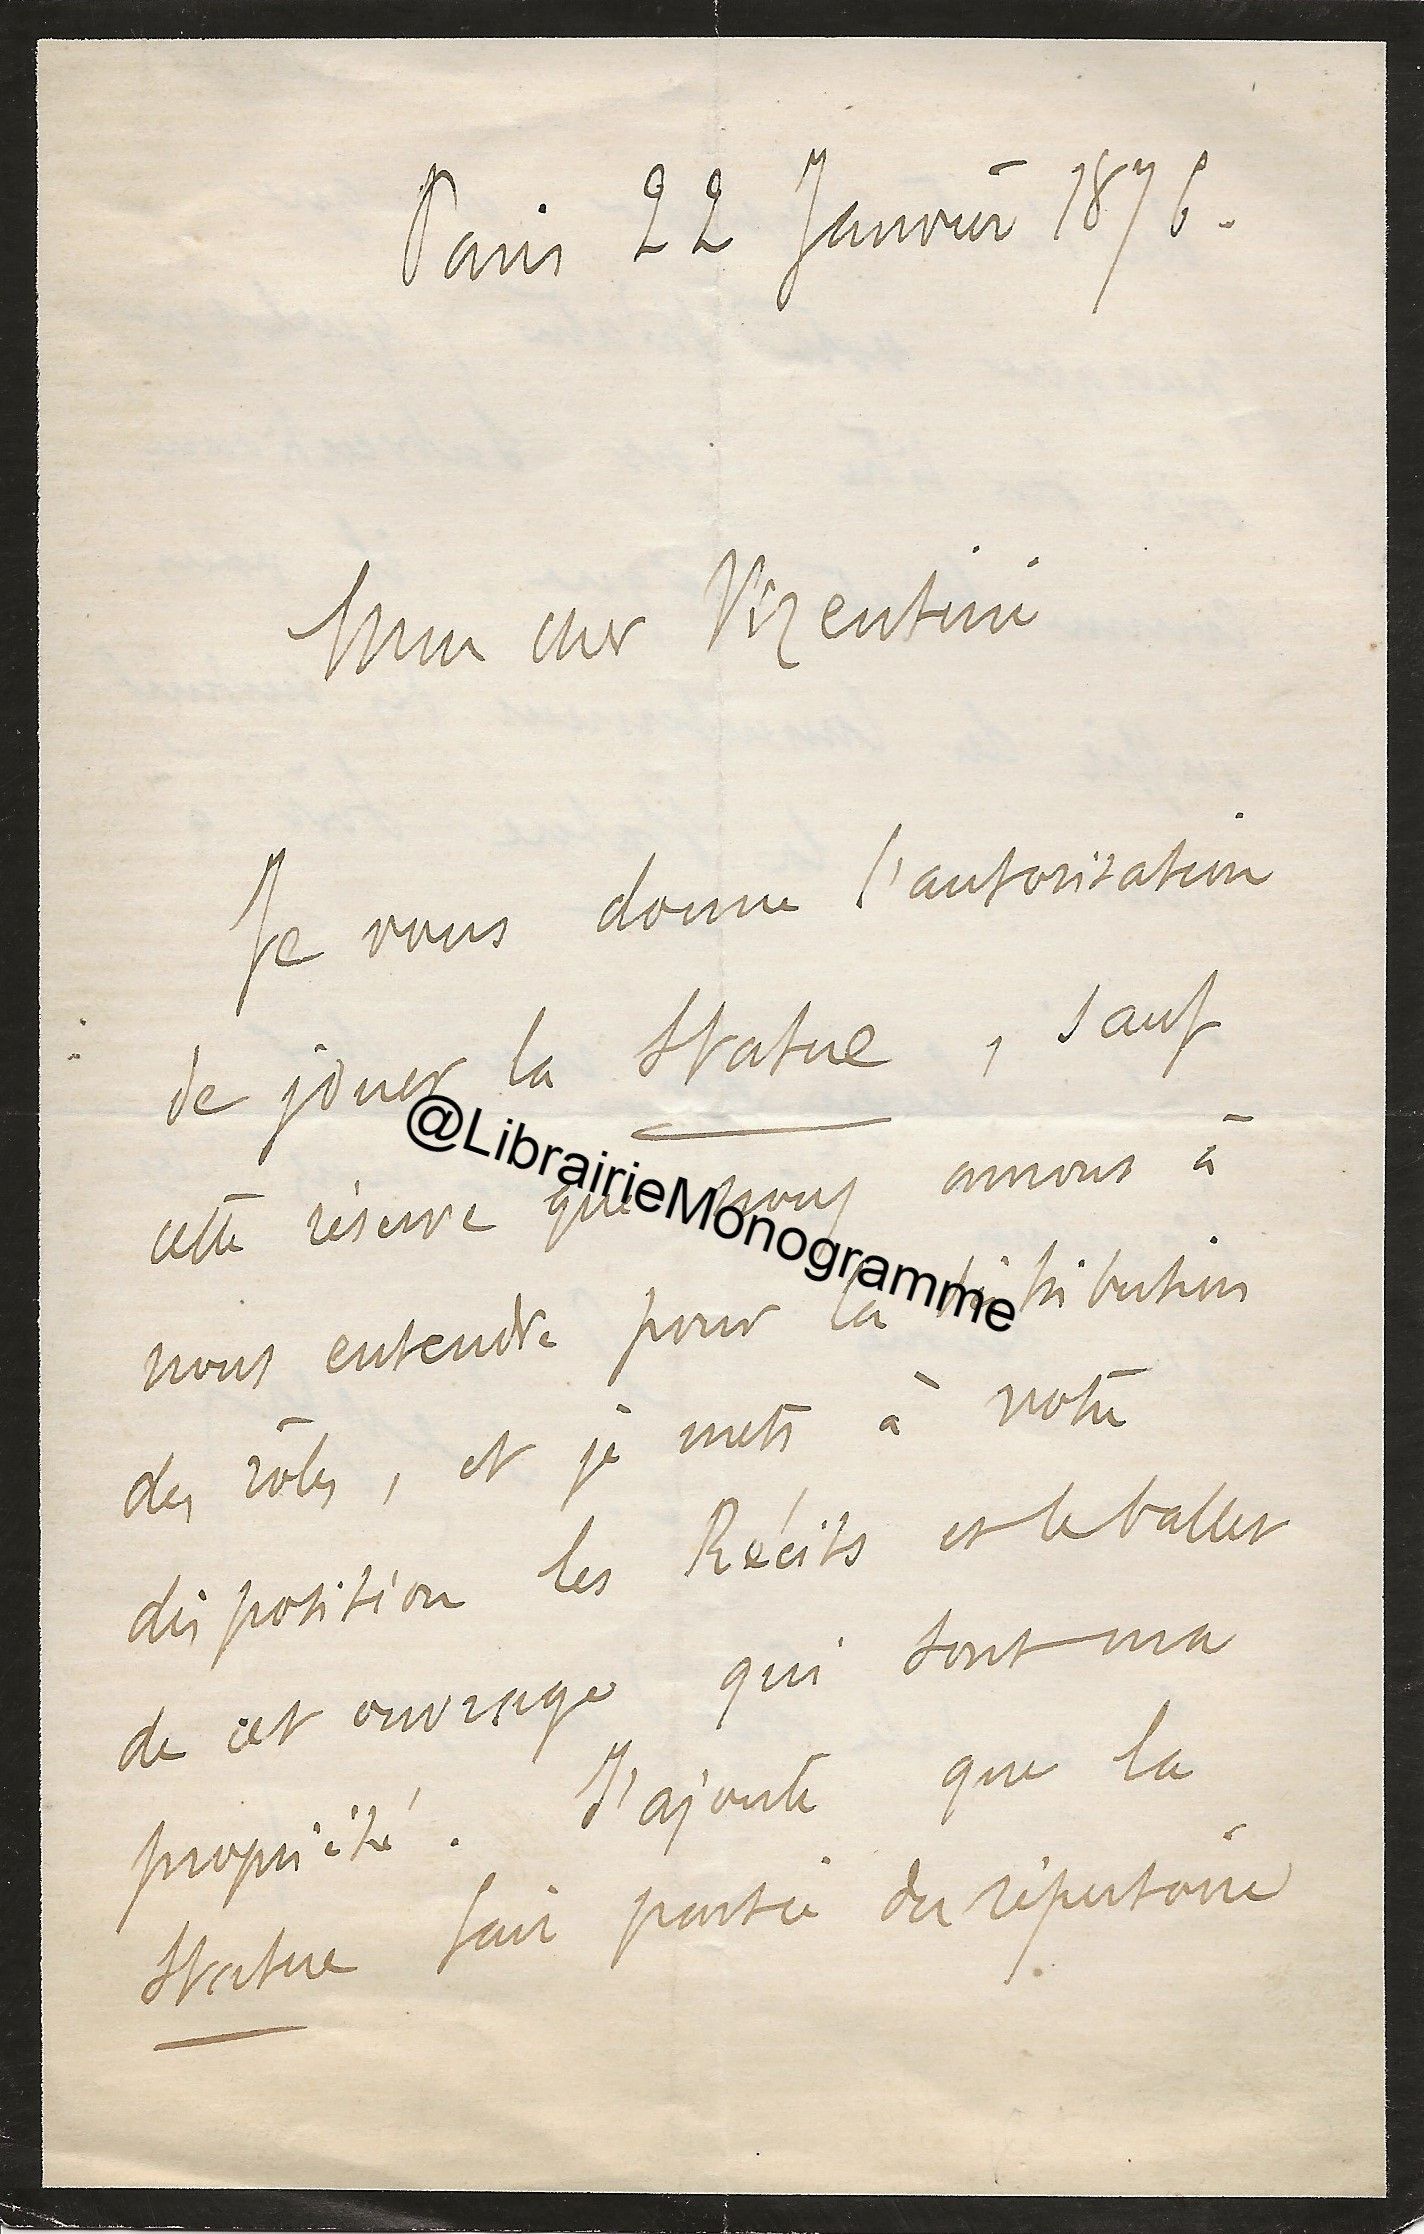 Paris 22 Janvier 1876.
Mon cher Vizentini
Je vous donne l'autorisation
de jouer la Statue, sauf
cette réserve que nous aurons à
nous entendre pour la distribution
des rôles, et je mets à votre
disposition les Récits et le ballet
de cet ouvrage qui sont ma
propriété. J'ajoute que la
Statue fait partie du répertoire
@LibrairieMonogramme